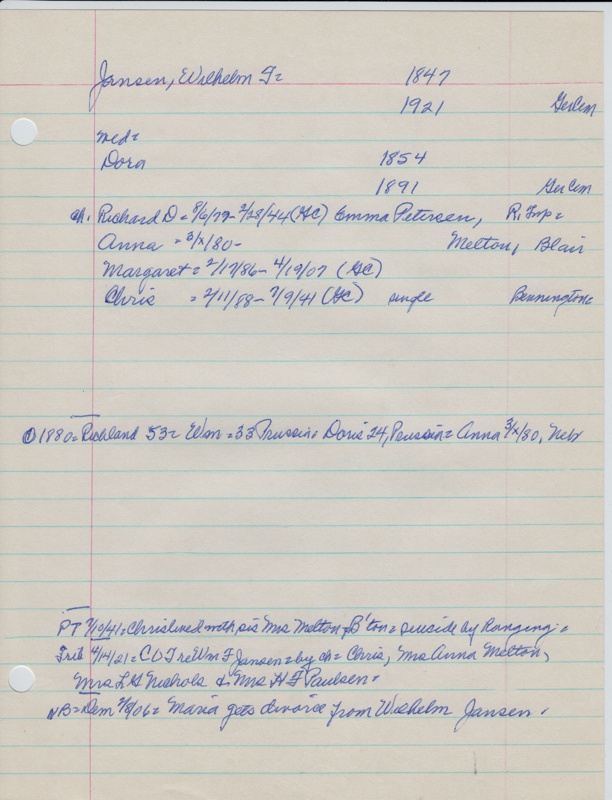 Jansen, Wilhelm F= 1847
1921 GerCem
med=
Dora 1854
1891 GerCem
ch. Richard D= 8/6/77- 2/28/44(GC) Emma Petersen, R. Twp=
Anna = 3/x/80- Melton, Blair
Margaret= 2/17/86- 4/19/07 (GC)
Chris = 2/11/88- 7/9/41 (GC) single Bennington=
1880= Richland 53= Wm=33 Prussia= Doris 24, Prussia= Anna 3/x/80, Nebr
PT 7/10/41= Chris lived with sis Mrs Melton B'ton= suicide by hanging=
Trib 4/14/21= COT re Wm F Jansen= by ch= Chris, Mrs Anna Melton,
Mrs L H Nichols & Mrs H F Paulsen.
NB= Dem 2/8/06= Maria gets divorce from Wilhelm Jansen.